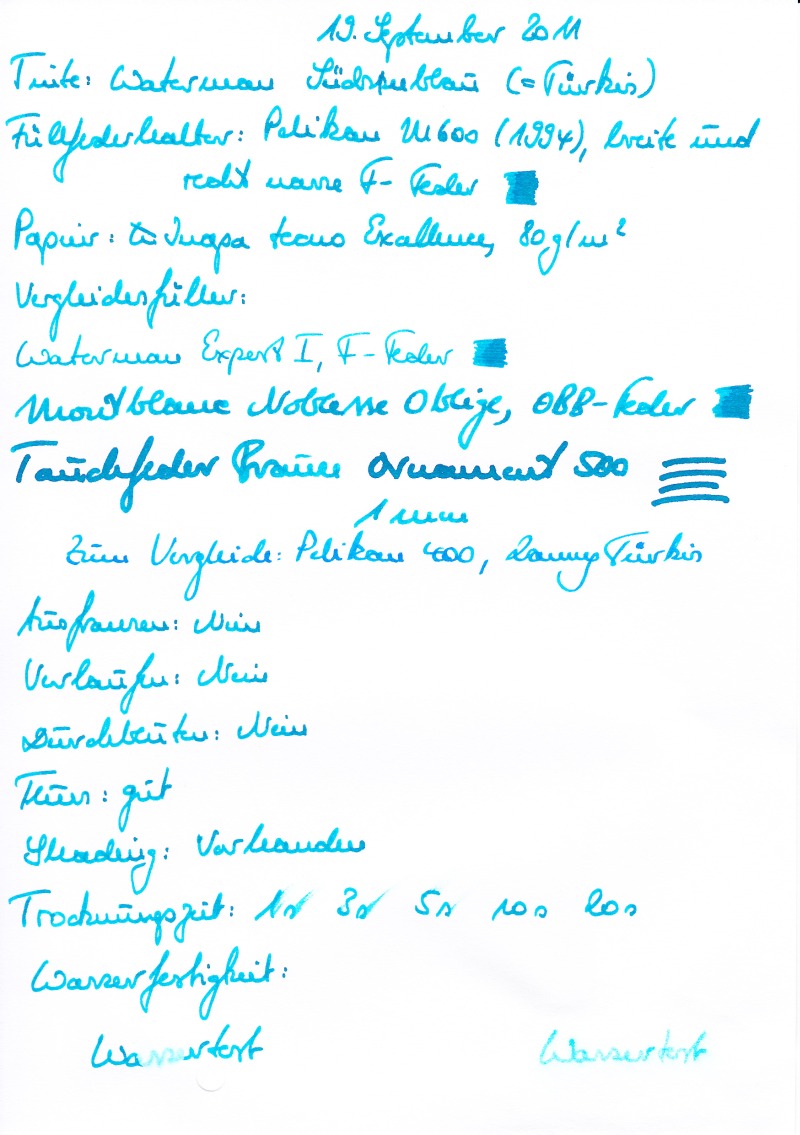 19. September 2011
Tinte: Waterman Südseeblau (= Türkis)
Füllfederhalter: Pelikan M600 (1994), breite und
recht nasse F-Feder
Papier: Inapa tecno Excellence, 80g/m²
Vergleichsfüller:
Waterman Expert I, F-Feder
Montblanc Noblesse Oblige, OBB-Feder
Tauchfeder Brause Ornament 500
1 mm
Zum Vergleich: Pelikan 400, Lamy Türkis
Ausfransen: Nein
Verlaufen: Nein
Durchbluten: Nein
Fluss: gut
Shading: Vorhanden
Trocknungszeit: 1s 3s 5s 10s 20s
Wasserfestigkeit:
Wassertest Wassertest